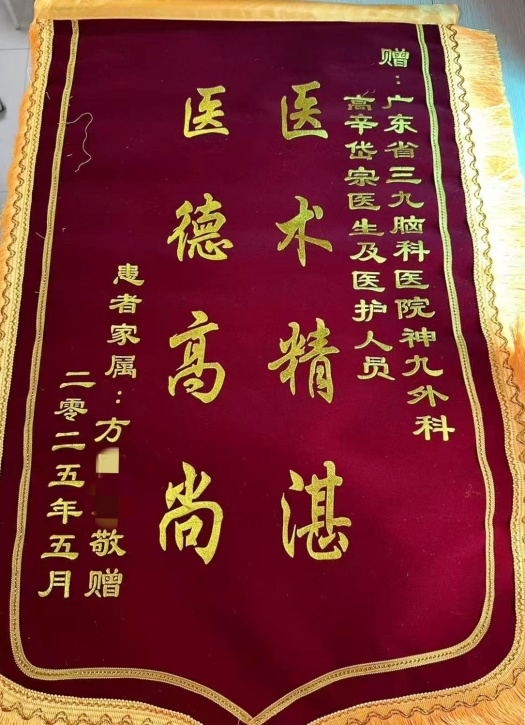 赠：广东省三九脑科医院神九外科
高辛岱宗医生及医护人员
医术精湛
医德高尚
患者家属：方敬赠
二零二五年五月